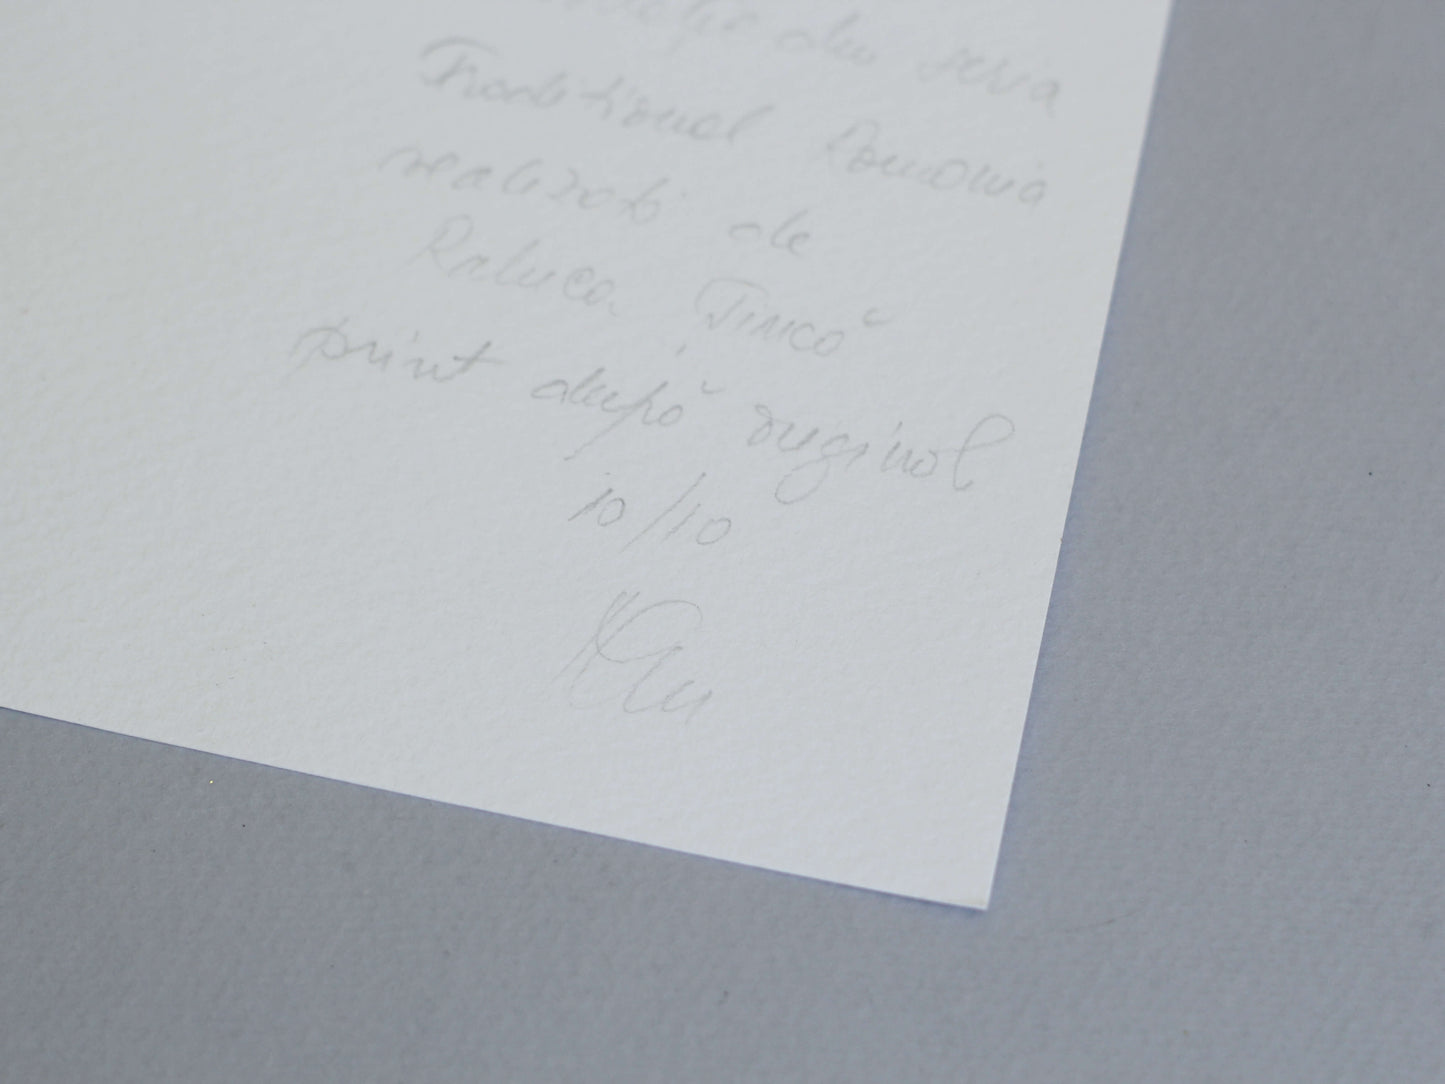 din seria
Traditional Romania
realizată de
Raluca Țincă
print după original
10/10